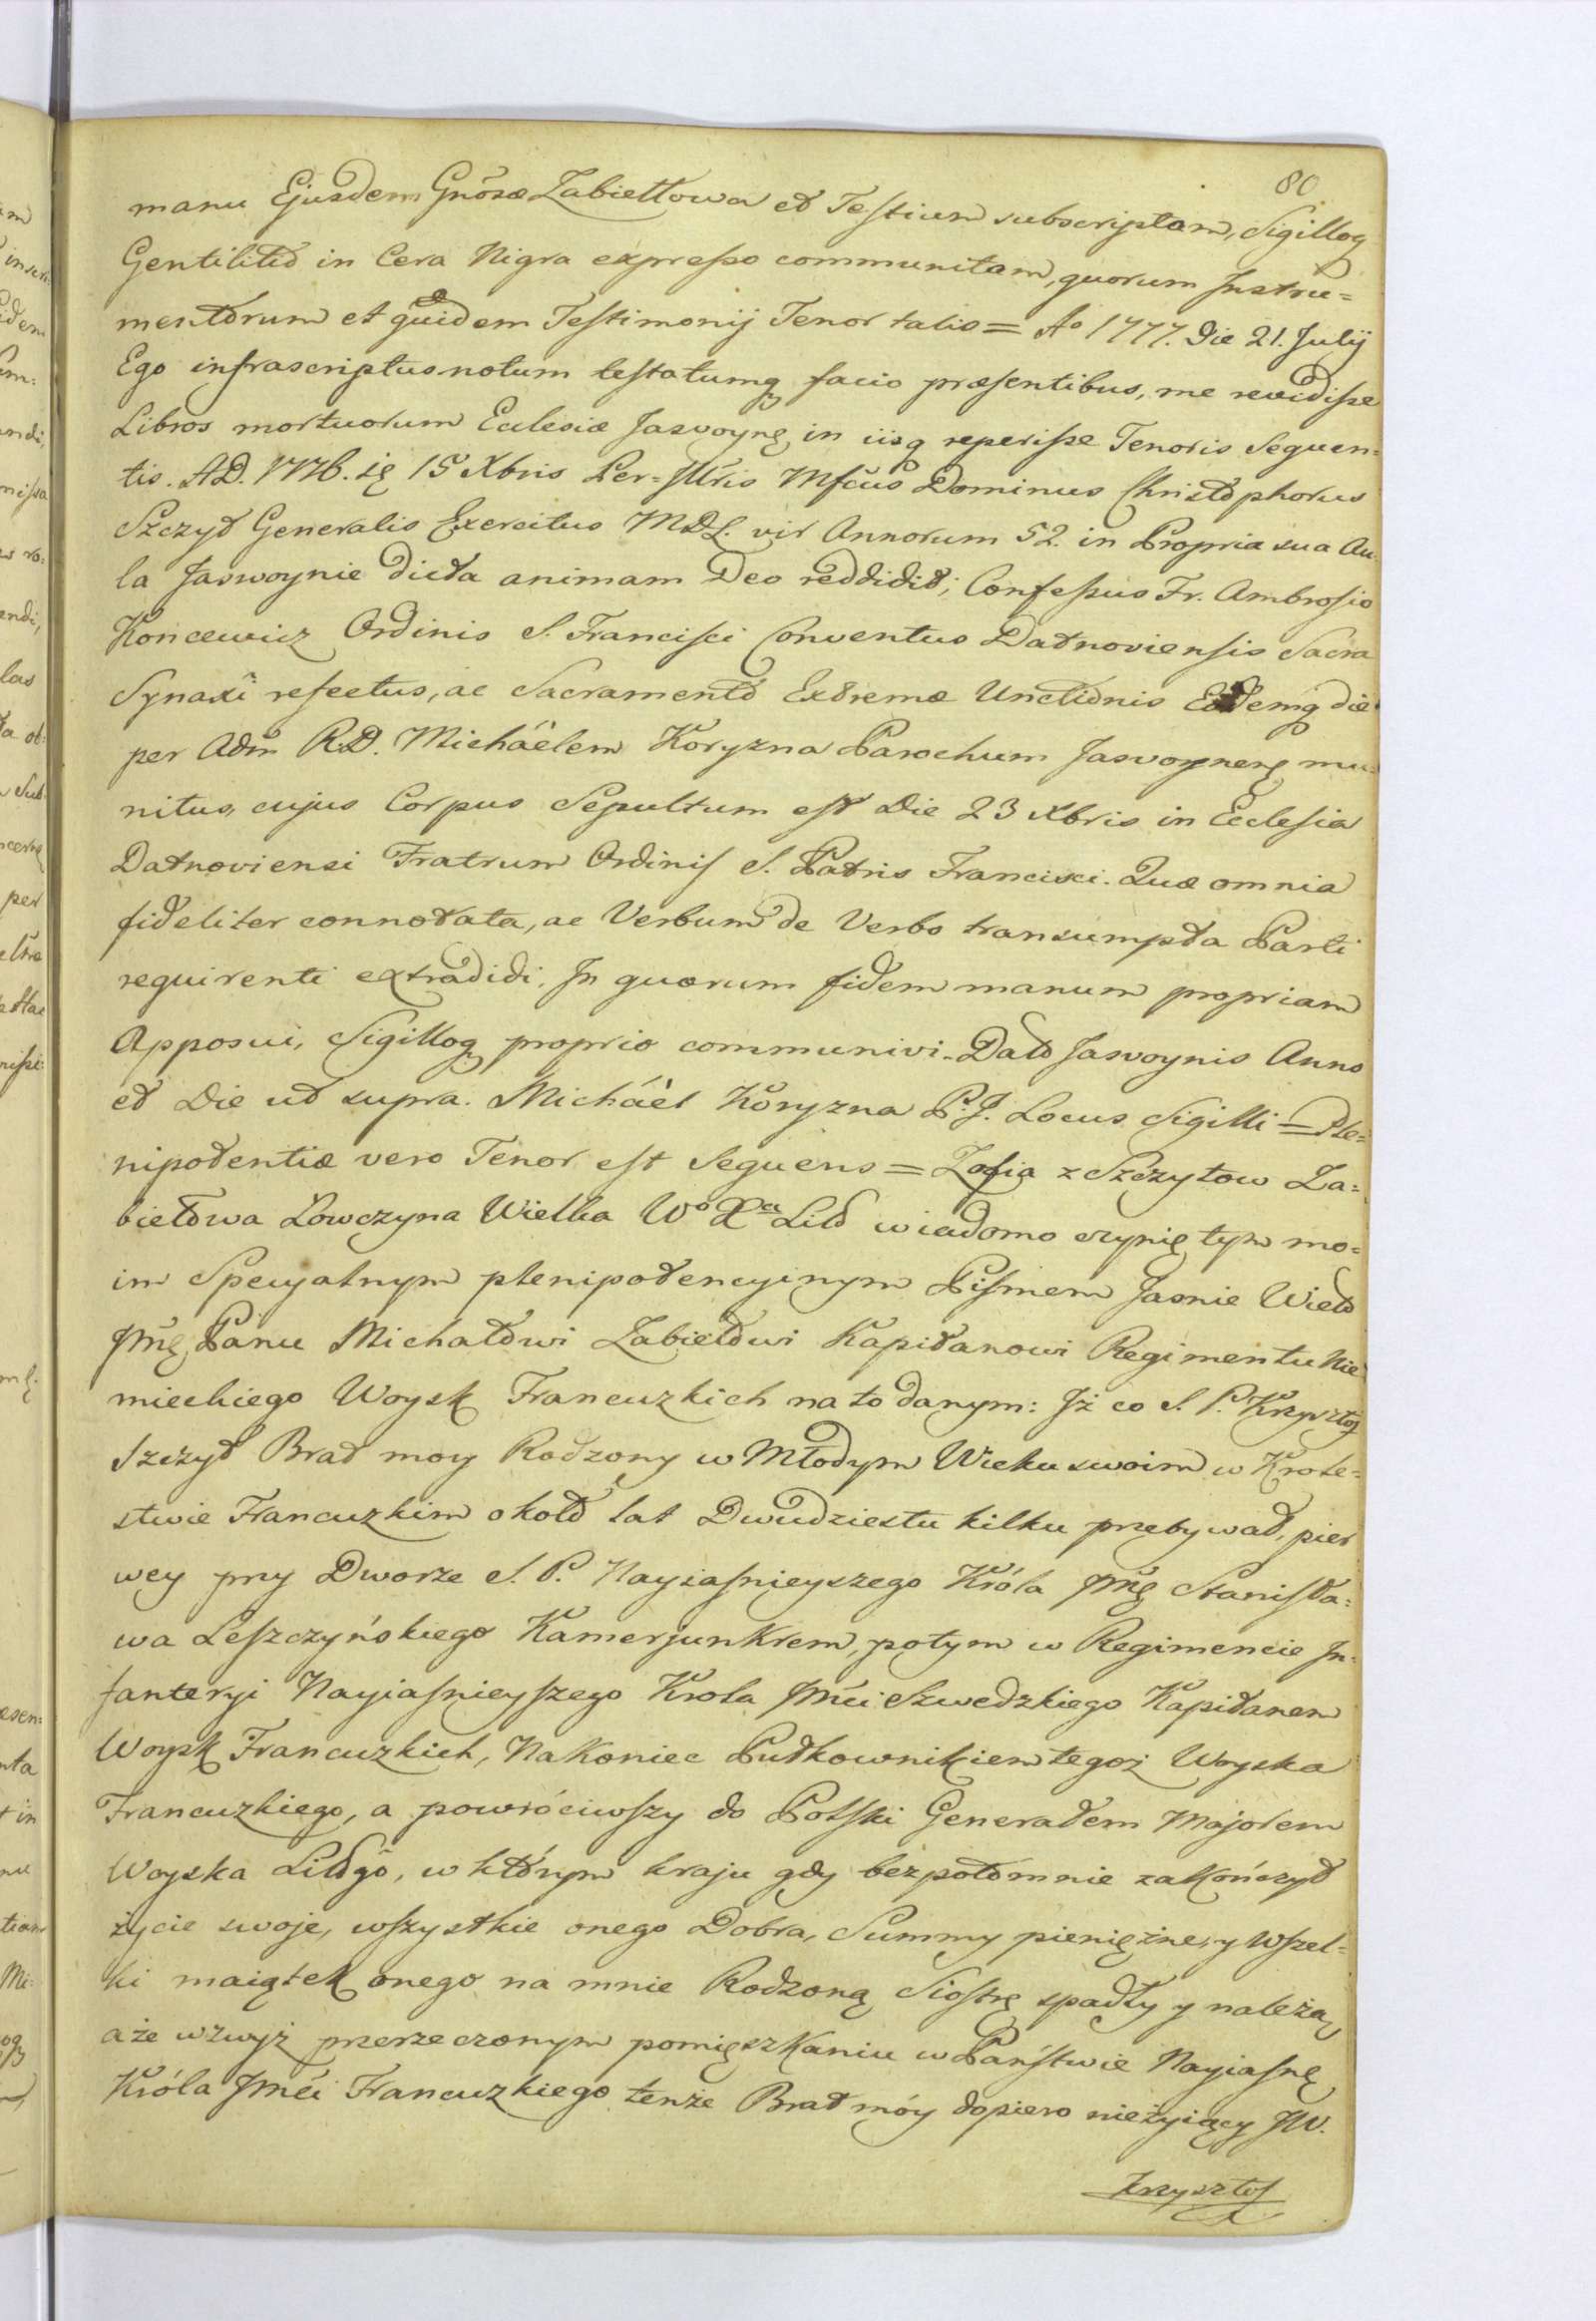 80
manu Ejusdem Gnõsæ Zabiełłowa et Testium subscriptam, Sigilloq
Gentilitio in Cera Nigra expresso communitam, quorum Instru=
mentorum et quidem Testimonij Tenor talis = Ao 1777. Die 21. Julij
Ego infrascriptus notum testatumq facio præsentibus, me revidisse
Libros mortuorum Ecclesiæ Jasvoynę, in iisq reperisse Tenoris Sequen=
tis. A.D. 1776. 15 Xbris Per=Illris Mfcus Dominus Christophorus
Szczyt Generalis Exercitus M.D.L. vir Annorum 52. in Propria sua Au
la Jaswoynie dicta animam Deo reddidit; Confessus Fr. Ambrosio
Koncewicz Ordinis S. Francisci Conventus Datnoviensis Sacra
Synaxi refectus, ac Sacramento Extremæ Unctionis Eodemq die
per Adm R.D. Michaëlem Koryzna Parochum Jasvoynenę mu=
nitus, cujus Corpus Sepultum est Die 23 Xbris in Ecclesia
Datnoviensi Fratrum Ordinis S. Patris Francisci. Quæ omnia
fideliter connotata, ac Verbum de Verbo transumpta Parti
requirenti extradidi. In quorum fidem manum propriam
Apposui, Sigilloq proprio communivi. Dato Jasvoynis Anno
et Die ut supra. Michaël Koryzna P.J. Locus Sigilli = Ple=
nipotentiæ vero Tenor est Sequens = Zofia z Szczytow Za=
biełłowa Łowczyna Wielka Wo Xa Litt wiadomo czynię tym mo=
im Specyalnym plenipotencyinym Pismem Jasnie Wielo
Jmę Panu Michałowi Zabiełłowi Kapitanowi Regimentu Nie
mieckiego Woysk Francuzkich na to danym: Iż co S. P. Krzysztof
Szczyt Brat moy Rodzony w Młodym Wieku swoim w Krole=
stwie Francuzkim około lat Dwudziestu kilku przebywał, pier
wey przy Dworze S. P. Nayiasnieyszego Króla Jmę Stanisła=
wa Leszczyńskiego Kamerjunkrem, potym w Regimencie In=
fanteryi Nayiasnieyszego Krola Jmci Szwedzkiego Kapitanem
Woysk Francuzkich, Nakoniec Pułkownikiem tegoż Woyska
Francuzkiego, a powróciwszy do Polski Generałem Majorem
Woyska Littgo, w którym kraju gdy bezpotomnie zakończył
życie swoje, wszystkie onego Dobra, Summy pieniężne, y wszel=
ki maiątek onego na mnie Rodzoną Siostrę spadły y należą,
a że wzwyż przerzeczonym pomięszkaniu w Państwie Nayiasnę
Króla Jmći Francuzkiego tenże Brat móy dopiero nieżyiący JW.
Krzysztof